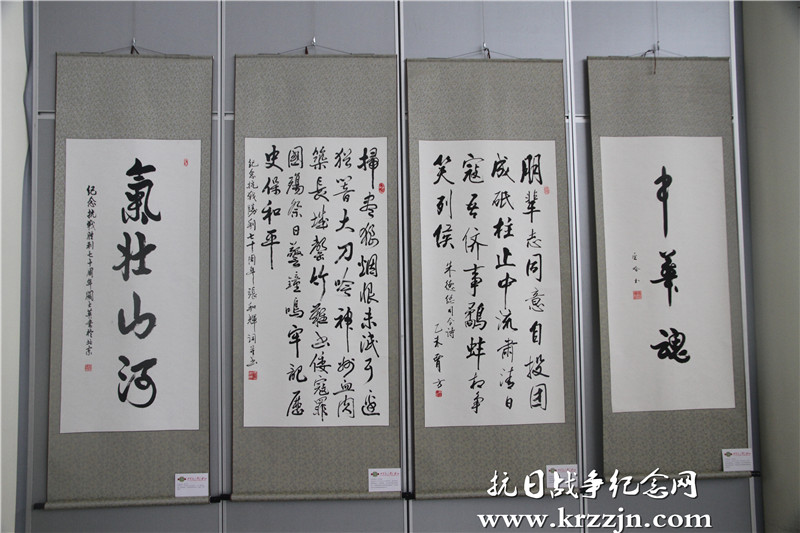 氣壯山河
掃盡狼烟恨未泯耳邊
猶響大刀吟神州血肉
築長城罄竹難書倭寇罪
國殤祭日警鐘鳴牢記歷
史保和平
紀念抗戰勝利七十周年 張和輝詞并書
朋輩志同意自投團
成砥柱止中流肅清日
寇吾儕事鷸蚌相爭
笑列侯
朱德總司令詩
乙未
中華魂
紀念抗戰勝利七十周年
抗日战争纪念网
www.krzzjn.com